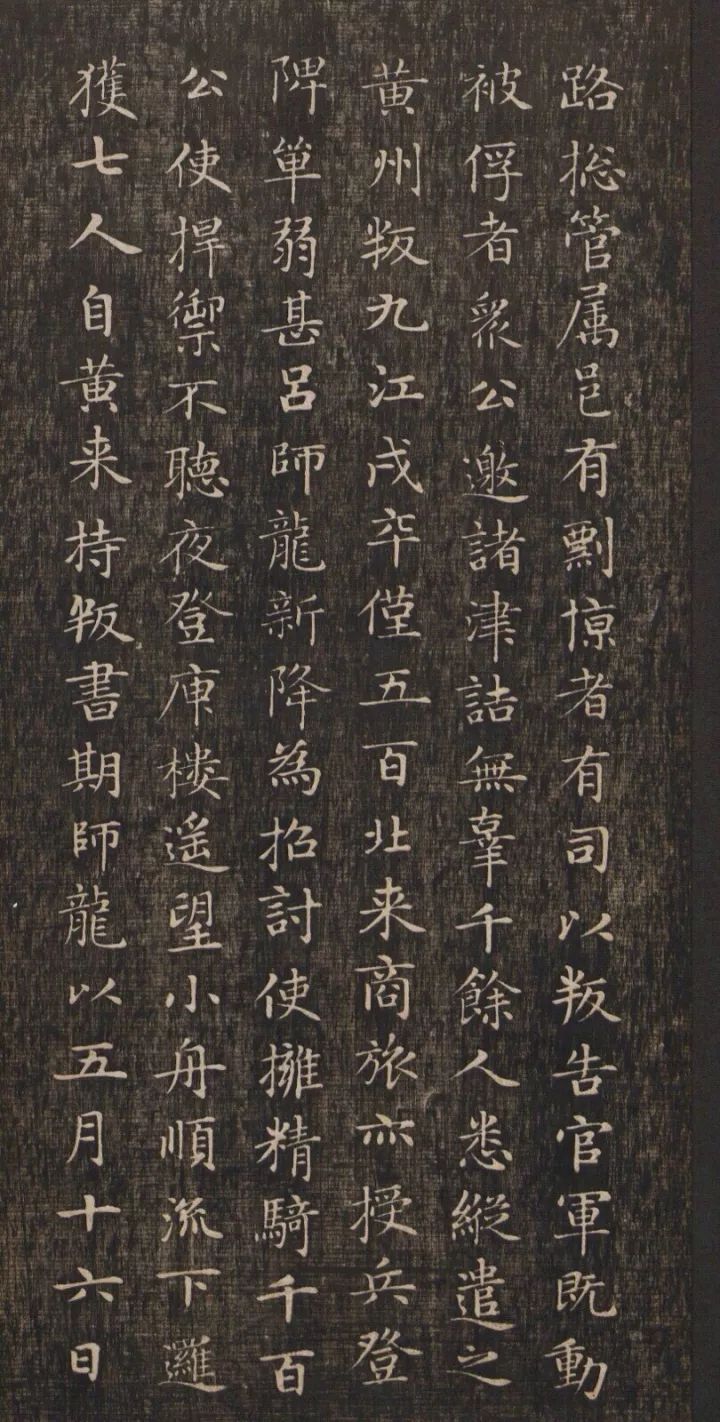 路総管属邑有剽掠者有司以叛告官軍既動
被俘者衆公邀諸津詰無辜千餘人悉縱遣之
黄州叛九江戍卒僅五百北来商旅亦授兵登
陴單弱甚呂師龍新降為招討使擁精騎千百
公使捍禦不聽夜登庾楼遥望小舟順流下邏
獲七人自黄来持叛書期師龍以五月十六日